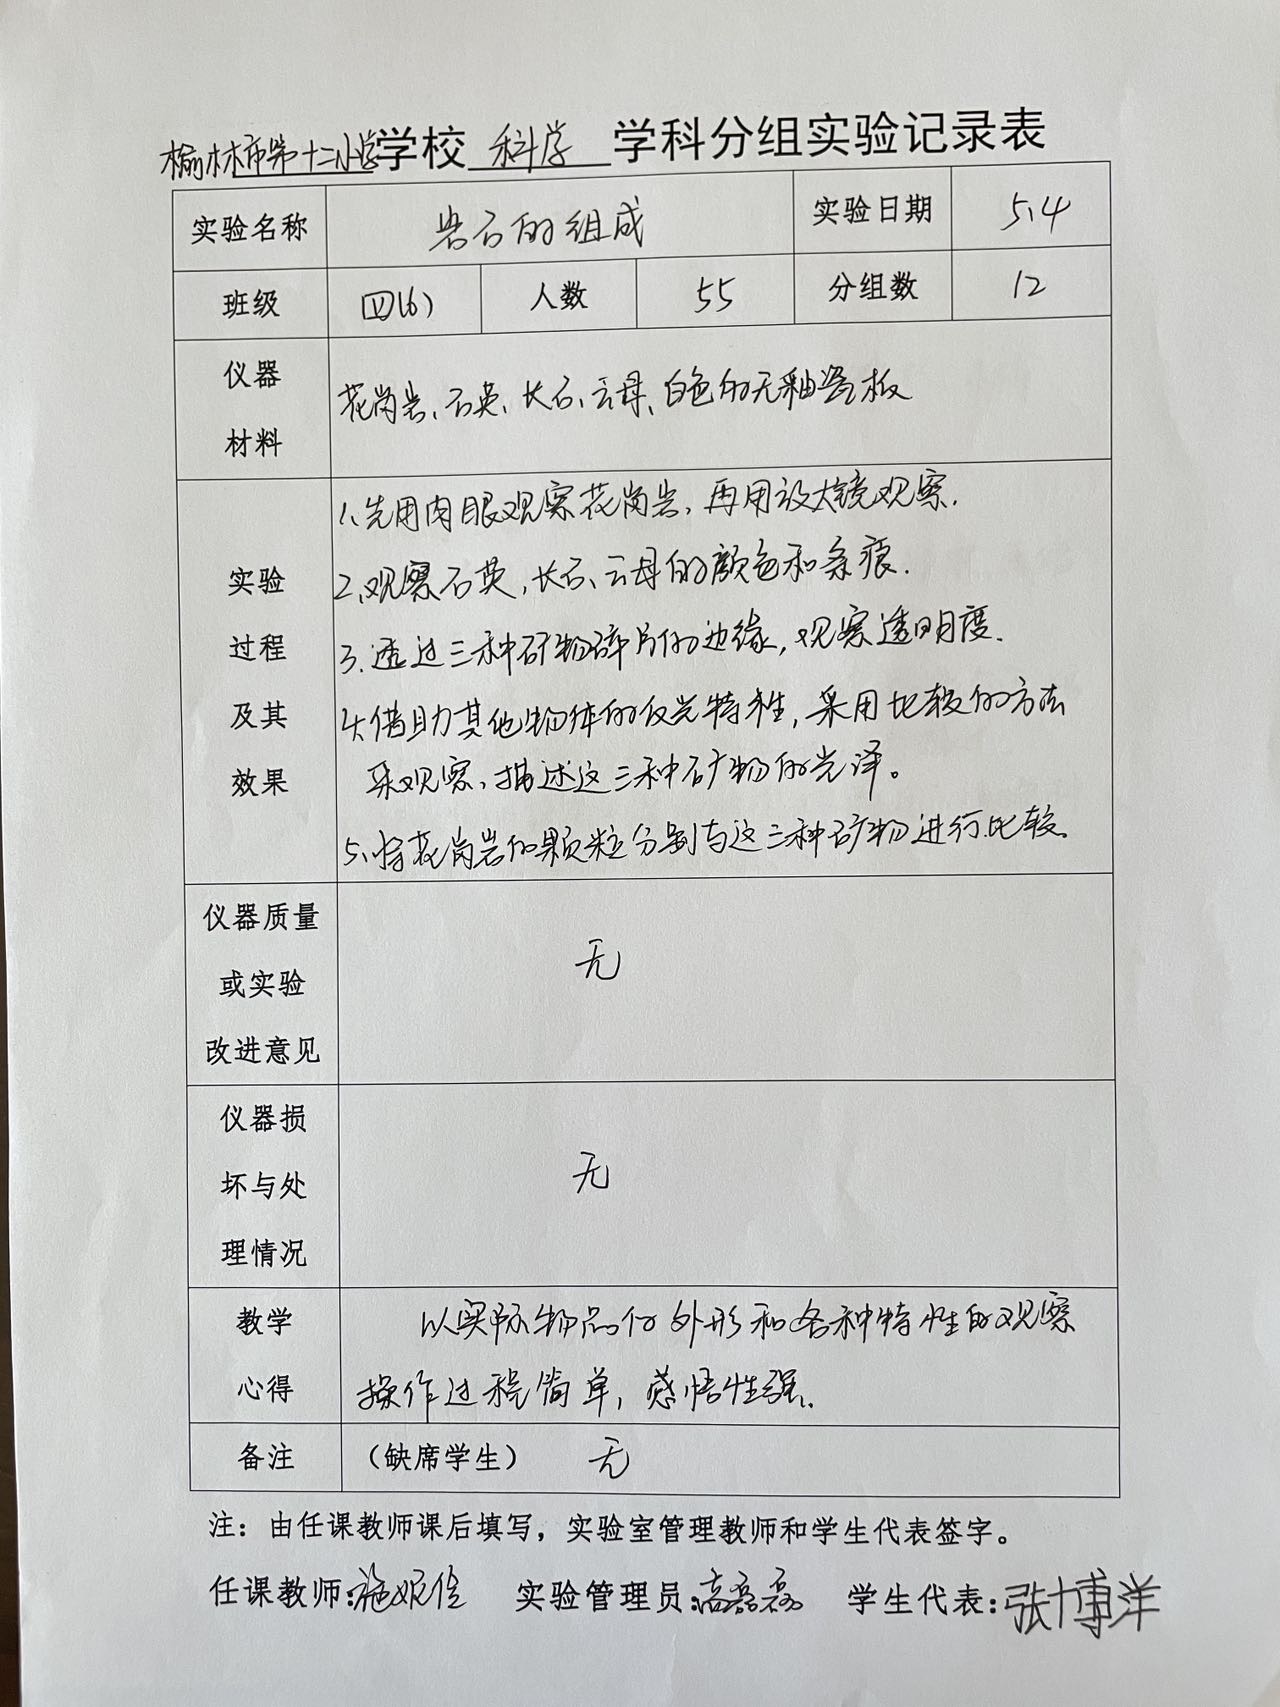 榆林市第十二小学学校 科学 学科分组实验记录表
实验名称 岩石的组成 实验日期 5.4
班级 四(6) 人数 55 分组数 12
仪器材料 花岗岩、石英、长石、云母、白色的无釉瓷板
实验过程及其效果
1、先用肉眼观察花岗岩,再用放大镜观察.
2、观察石英,长石、云母的颜色和条痕.
3.透过三种矿物碎片的边缘,观察透明度.
4、借助其他物体的反光特性,采用比较的方法
来观察、描述这三种矿物的光泽。
5、将花岗岩的颗粒分别与这三种矿物进行比较.
仪器质量或实验改进意见 无
仪器损坏与处理情况 无
教学心得 以实际物品的外形和各种特性的观察
操作过程简单,感悟性强.
备注 (缺席学生) 无
注:由任课教师课后填写,实验室管理教师和学生代表签字。
任课教师:施妮佳 实验管理员: 学生代表:张博洋